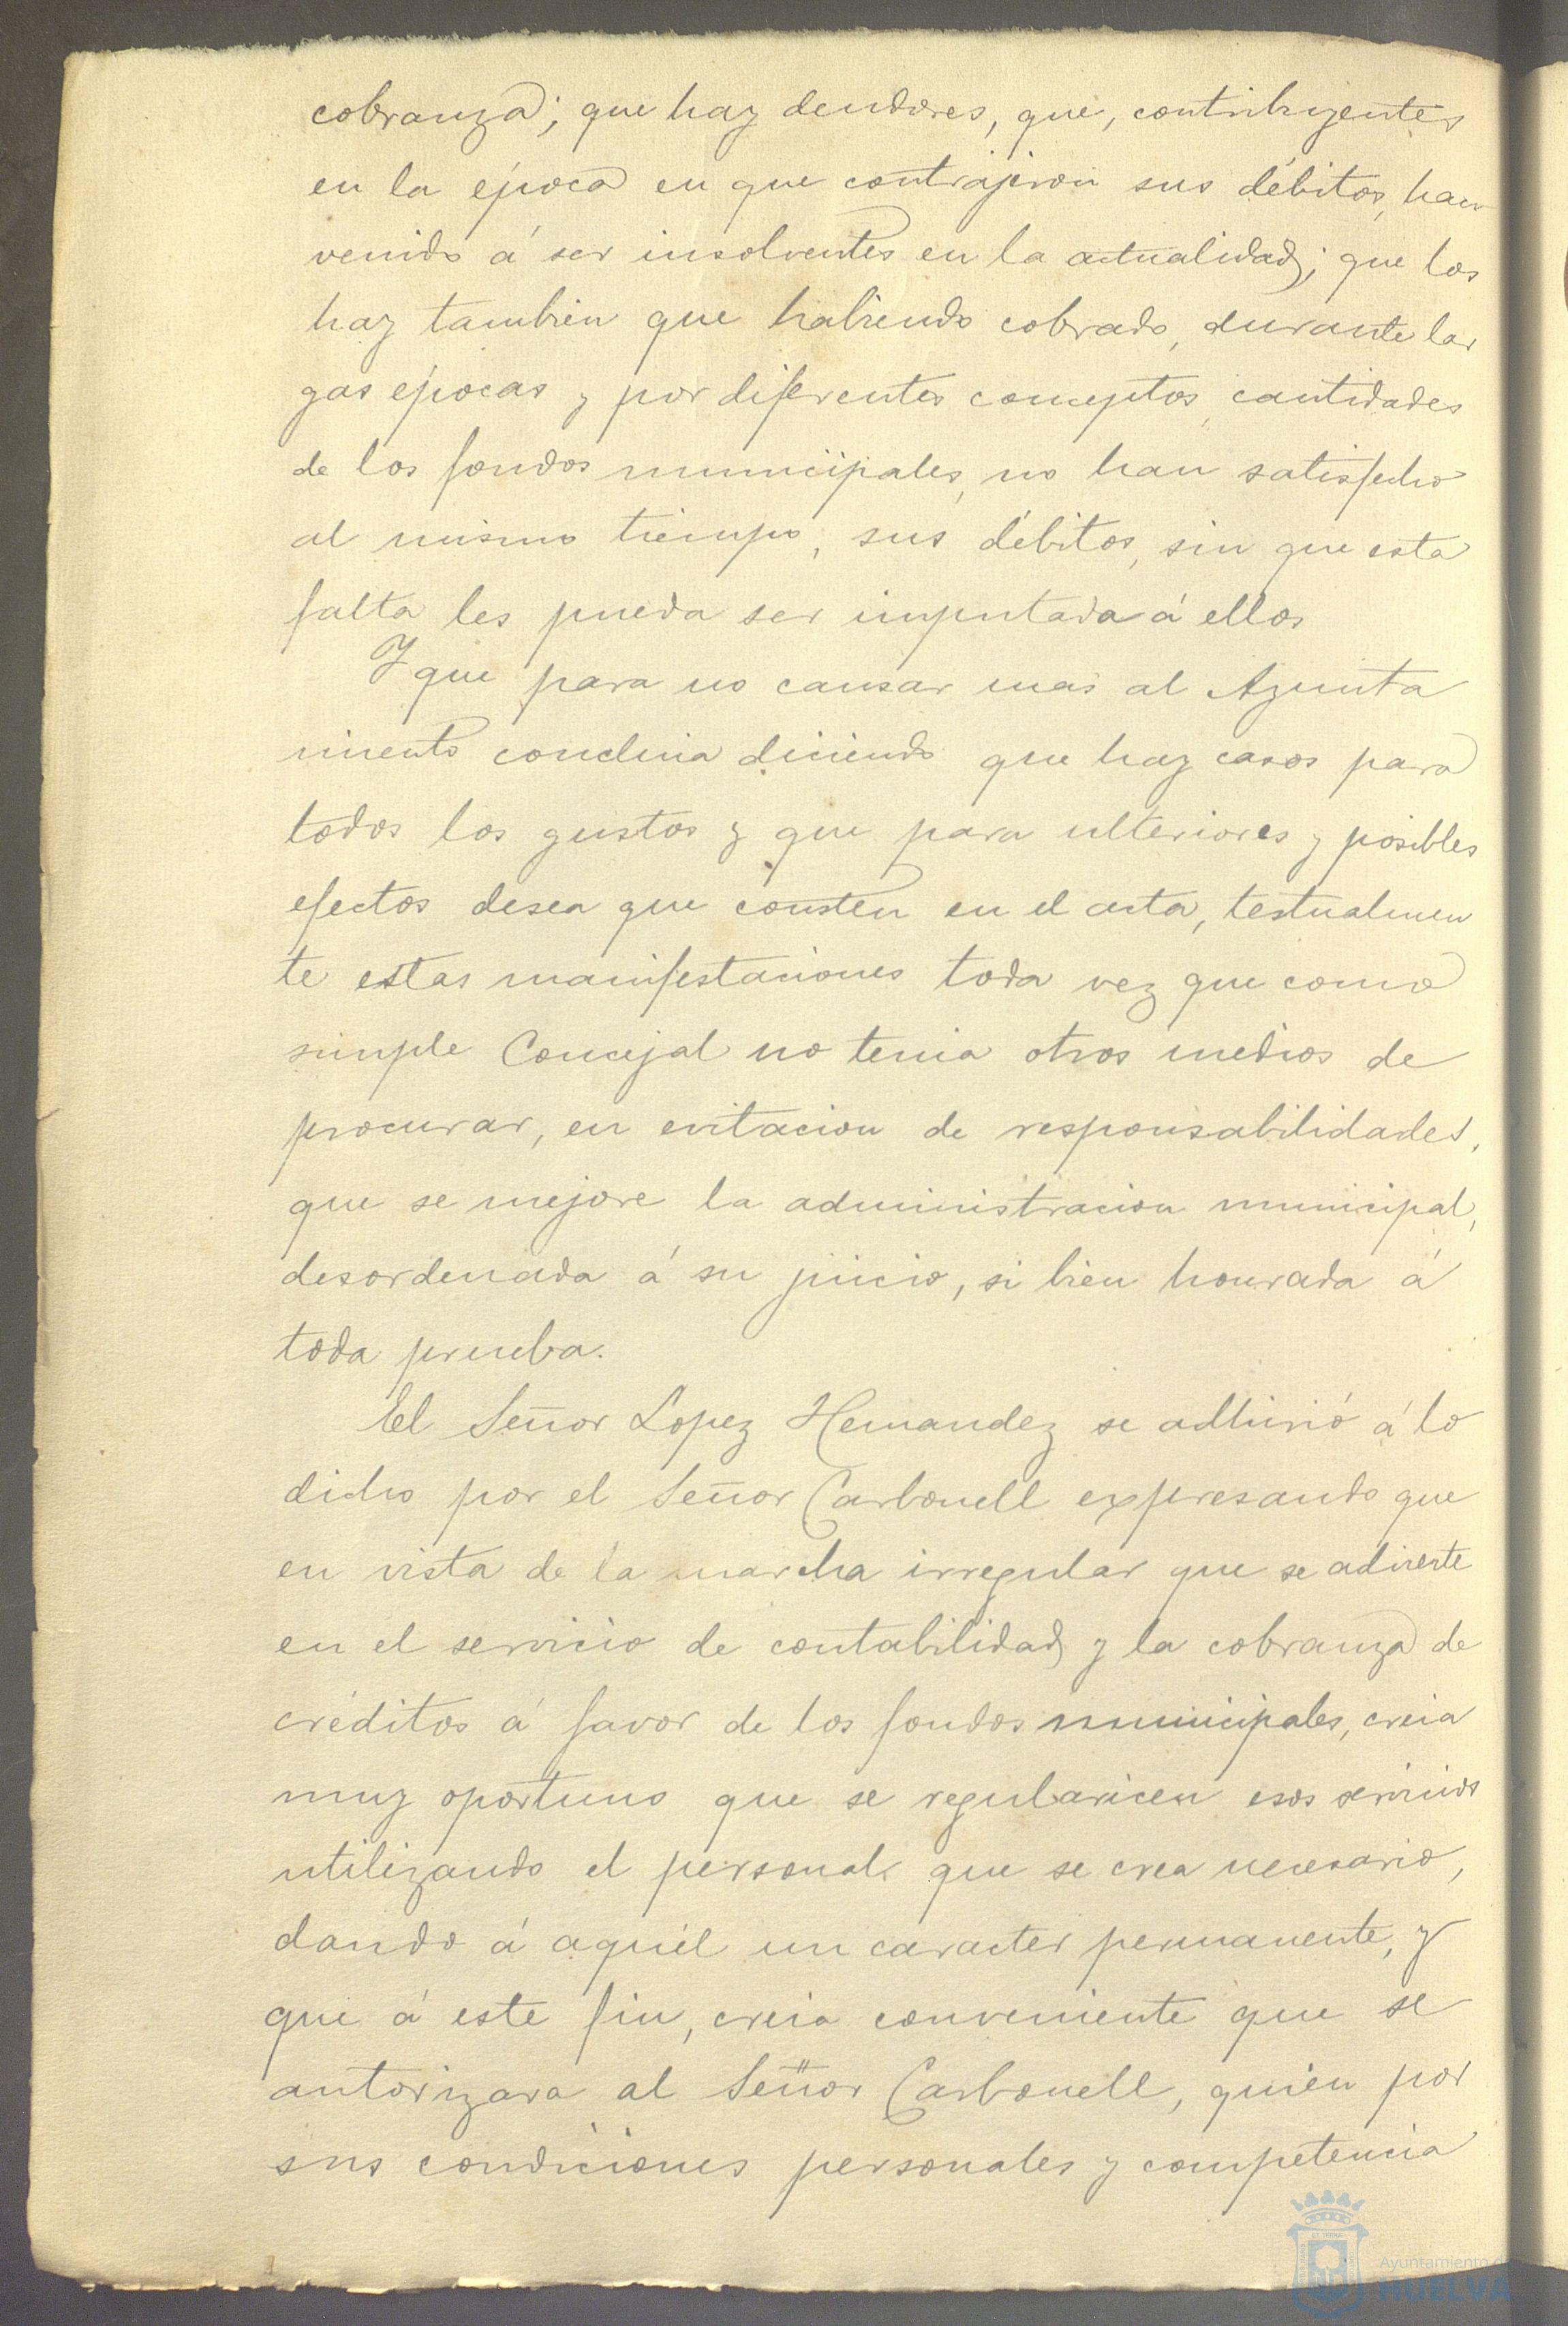 cobranza; que hay deudores, que, contribuyentes
en la época en que contrajeron sus débitos, han
venido á ser insolventes en la actualidad; que los
hay tambien que habiendo cobrado, durante lar
gas epocas y por diferentes conceptos, cantidades
de los fondos municipales, no han satisfecho
al mismo tiempo, sus débitos, sin que esta
falta les pueda ser imputada á ellos
Y que para no cansar mas al Ayunta
miento concluia diciendo que hay casos para
todos los gustos y que para ulteriores y posibles
efectos desea que consten en el acta, testualmen
te estas manifestaciones toda vez que como
simple Concejal no tenia otros medios de
procurar, en evitacion de responsabilidades,
que se mejore la administracion municipal,
desordenada á su juicio, si bien honrada á
toda prueba.
El Señor Lopez Hernandez se adhirió á lo
dicho por el Señor Carbonell expresando que
en vista de la marcha irregular que se advierte
en el servicio de contabilidad y la cobranza de
créditos á favor de los fondos municipales, creia
muy oportuno que se regularicen esos servicios
utilizando el personal que se crea necesario,
dando á aquél un caracter permanente, y
que á este fin, creia conveniente que se
autorizara al Señor Carbonell, quien por
sus condiciones personales y competencia
Ayuntamiento de
HUELVA